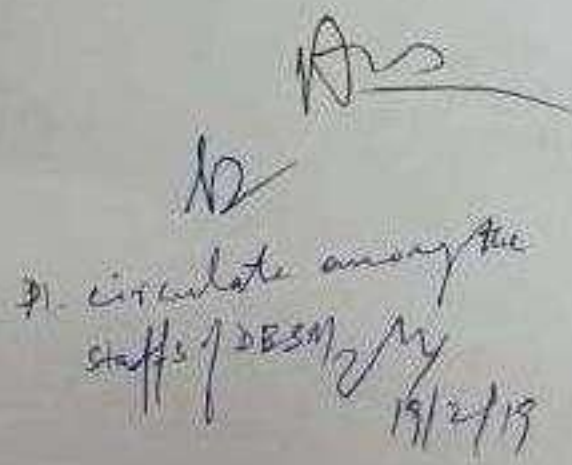 Pl. circulate among the
staffs of DESM
19/2/19